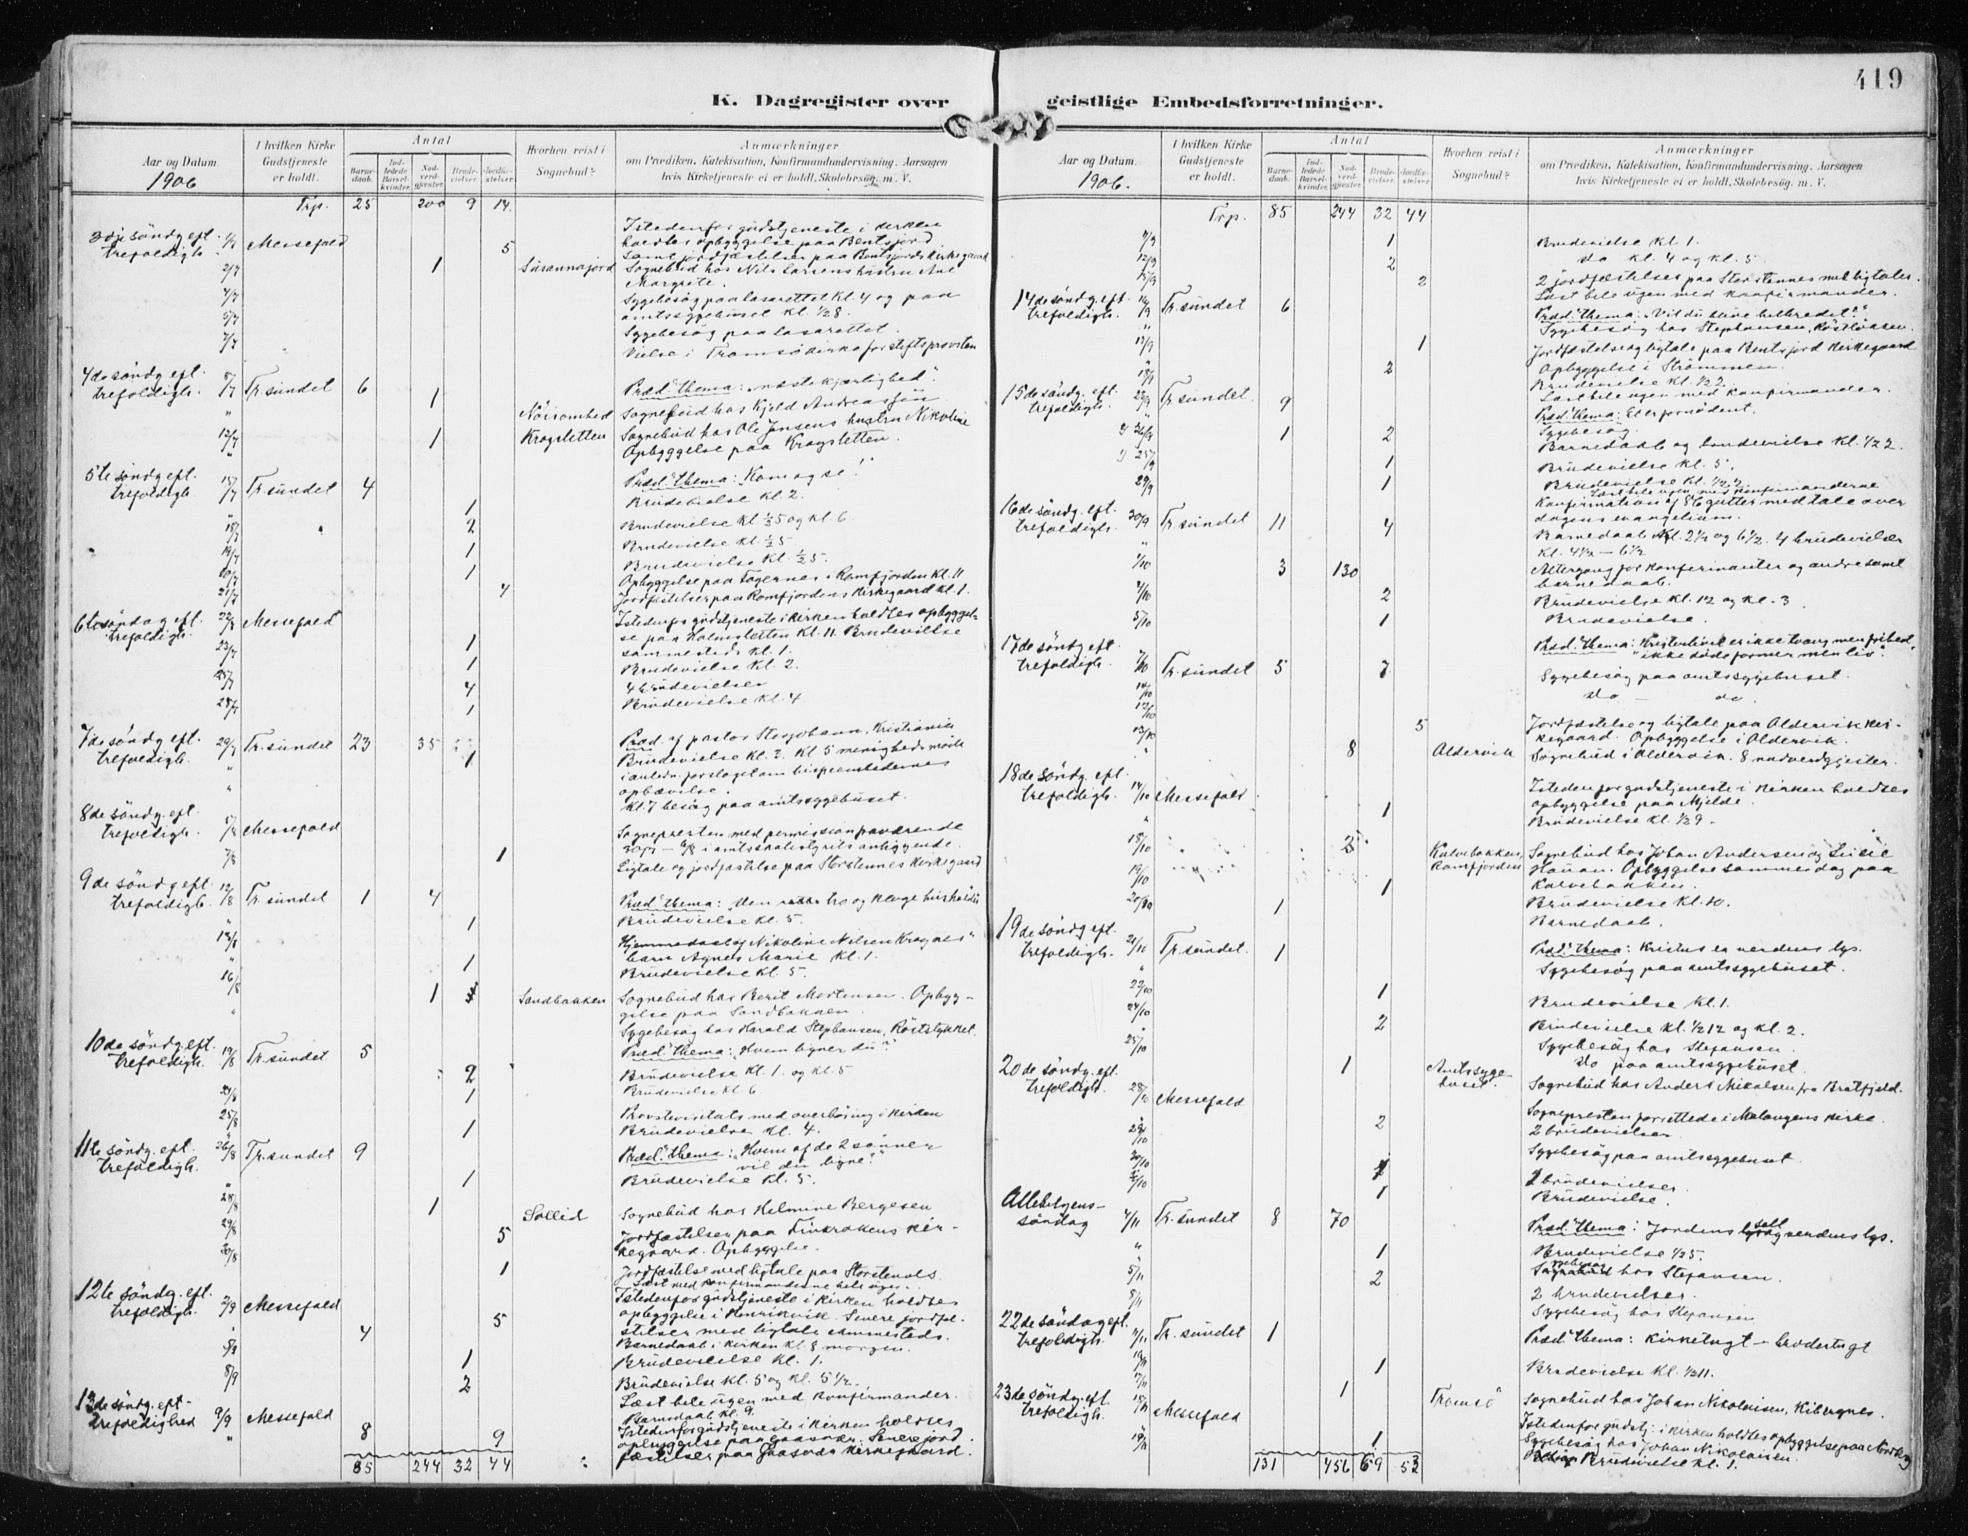 419
K. Dagregister over geistlige Embedsforretninger.
Aar og Datum.
1906
I hvilken Kirke Gudstjeneste er holdt.
Antal
Barnedaab.
Indledede Barselkvinder.
Nadverdgjester.
Brudevielser.
Jordfæstelser.
Hvorhen reist i Sognebud?
Anmærkninger
om Prædiken, Katekisation, Konfirmandundervisning, Aarsagen
hvis Kirketjeneste ei er holdt, Skolebesøg m. V.
Trp. 25 200 9 14.
3die söndg eft. trefoldigh. 1/7 Messefald 5 Istedenfor gudstjeneste i kirken
holdtes opbyggelse paa Bentsjord
samt jordfæstelser paa Bentsjords kirkegaard
2/7 1 Susannajord Sognebud hos Nils Larsens hustru Ane
Margrete.
4/7 Sygebesög paa lasarettet kl. 4 og paa
amtssygehuset kl. 1/2 8.
5/7 Sygebesög paa lasarettet.
7/7 Vielse i Tromsö kirke for stiftsprovsten
4de söndg eft. trefoldigh. 8/7 Tr.sundet 6 Præd. thema: "næstekjærlighed".
" 1 Nöisomhed Sognebud hos Kjeld Andreassen
12/7 1 Kragsletten Sognebud hos Ole Jensens hustru Nikoline
" Opbyggelse paa Kragsletten.
5te söndg eft. trefoldigh. 15/7 Tr.sundet 4 Præd. thema: "Kom og se!"
1 Brudevielse kl. 2.
" 2 Brudevielse kl 1/2 5 og kl 6.
18/7 1 Brudevielse kl. 1/2 5.
19/7 1 Brudevielse kl. 1/2 5.
20/7 Opbyggelse paa Fagernes i Ramfjorden kl. 11
21/7 4 Jordfæstelser paa Ramfjordens kirkegaard kl. 1.
6te söndag eft. trefoldigh. 22/7 Messefald Istedenfor gudstjeneste i kirken holdtes opbyggel-
se paa Holmesletten kl. 11. Brudevielse
23/7 1 sammesteds kl. 1.
1 Brudevielse kl. 2.
25/7 4 4 brudevielser
28/7 1 Brudevielse kl. 4
7de söndg eft. trefoldigh. 29/7 Tr.sundet 23 35 Præd. af pastor Storjohann, Kristiania
" 1 Brudevielse kl. 3. Kl 5 menighedsmöte
i anledn. forslaget om bispeembedernes
" ophævelse.
Kl 7 besög paa amtssygehuset.
8de söndg. eft. trefoldigh. 5/8 Messefald Sognepresten med permission fraværende
30/7 - 6/8 i amtsskolestyrets anliggende.
7/8 1 Ligtale og jordfæstelse paa Storstennes kirkegaard
9de söndg eft. trefoldigh. 12/8 Tr.sundet 1 4 Præd. thema: den tro og kloge husholder
" 1 Brudevielse kl. 5.
15/8 Hjemmedaab af Nikoline Nilsen Kragnes'
" 1 barn Agnes Marie kl. 1.
Brudevielse kl. 5.
16/8 1 Sandbakken Sognebud hos Berit Mortensen. Opbyg-
gelse paa Sandbakken.
" Sygebesög hos Harald Stephansen, Röstlykket.
10de söndg. eft. trefoldigh. 19/8 Tr.sundet 5 Præd. thema: "Hvem ligner du?"
2 Brudevielse kl. 1. og kl. 5
24/8 1 Brudevielse kl 6.
25/8 Provstevisitats med overhöring i kirken
" 1 Brudevielse kl. 4.
11te söndg. eft. trefoldigh. 26/8 Tr.sundet 9 Præd. thema: "Hvem af de 2 sönner
vil du ligne?"
" 1 Brudevielse kl. 5.
28/8 1 Sollid Sognebud hos Helmine Bergesen
29/8 5 Jordfæstelser paa Finkrokens kir-
kegaard. Opbyggelse.
30/8 1 Jordfæstelse med ligtale paa Storstennes.
Læst med konfirmanderne hele ugen.
12te söndg. eft. trefoldigh. 2/9 Messefald Istedenfor gudstjeneste i kirken holdtes
5 opbyggelse i Henrikvik. Senere jordfæ-
stelser med ligtale sammesteds.
" 4 Barnedaab i kirken kl. 8 morgen.
5/9 1 Brudevielse kl. 1.
8/9 2 Brudevielse kl. 5 og kl. 5 1/2.
Læst hele ugen med konfirmander.
13de söndg. eft. trefoldighed 9/9 Messefald 8 Barnedaab kl. 9.
Istedenfor gudstjeneste i kirken holdtes
" 9 opbyggelse paa Gaasvær. Senere jord-
fæstelser paa Gaasvær kirkegaard.
85 244 32 44
Aar og Datum.
1906.
I hvilken Kirke Gudstjeneste er holdt.
Antal
Barnedaab.
Indledede Barselkvinder.
Nadverdgjester.
Brudevielser.
Jordfæstelser.
Hvorhen reist i Sognebud?
Anmærkninger
om Prædiken, Katekisation, Konfirmandundervisning, Aarsagen
hvis Kirketjeneste ei er holdt, Skolebesøg m. V.
Trp. 85 244 32 44
1 Brudevielse kl. 1.
12/9 2 do kl. 4 og kl. 5
15/9 2 2 jordfæstelser paa Storstennes med ligtaler.
Læst hele ugen med konfirmander.
14de söndg eft. trefoldigh. 16/9 Tr.sundet 6 Præd. thema: "Vil du blive helbredet?"
" Sygebesög hos Stephansen, Röstlökken.
17/9 1 Jordfæstelse og ligtale paa Bentsjord kirkegaard
" Opbyggelse i Strömmen.
2 Brudevielse kl. 1/2 2.
Læst hele ugen med konfirmander.
15de söndg. eft. trefoldigh. 23/9 Tr.sundet. 9 Præd. thema: Et er fornödent.
" Sygebesög.
26/9 1 2 Barnedaab og brudevielse kl. 1/2 2.
25/9 1 Brudevielse kl. 5.
29/9 1 Brudevielse kl. 1/2 2.
Læst hele ugen med konfirmanderne
16de söndg. eft. trefoldigh. 30/9 Tr.sundet 11 4 Konfirmation af 86 gutter med tale over
dagens evangelium.
" Barnedaab kl. 2 1/2 og 6 1/2. 4 brudevielser
kl. 4 1/2 - 6 1/2.
1/10 3 130 Altergang for konfirmanter og andre samt
barnedaab.
2/10 2 Brudevielse kl. 12 og kl. 3.
5/10 1 Brudevielse.
17de söndg eft. trefoldigh. 7/10 Tr.sundet 5 7 Præd. thema: Kristenlivet er ikke tvang men frihed,
"ikke döde former men liv".
Sygebesög paa amtssygehuset.
12/10 do - do
13/10 5 Jordfæstelse og ligtale paa Aldervik kir-
kegaard. Opbyggelse i Aldervik.
" 8 Aldervik Sognebud i Aldervik. 8 nadverdgjester.
18de söndg. eft. trefoldigh. 14/10 Messefald Istedenfor gudstjeneste i kirken holdtes
opbyggelse paa Mjelde.
" 1 Brudevielse kl. 1/2 9.
18/10 2 Kalvebakken, Ramfjorden Sognebud hos Johan Andersen og Lucie
Hanan. Opbyggelse samme dag paa
Kalvebakken.
19/10 1 Brudevielse kl. 10.
20/10 1 Barnedaab.
19de söndg eft. trefoldigh. 21/10 Tr.sundet. 1 Præd. thema: Kristus en verdens lys.
" Sygebesög paa amtssygehuset.
1 Brudevielse kl. 1.
24/10 2 Brudevielse kl. 1/2 12 og kl. 2.
" Sygebesög hos Stefansen.
25/10 do paa amtssygehuset
20de söndg. eft. trefoldigh. 1 Amtssygehuset. Sognebud hos Anders Nikolsen fra Bratfjeld.
28/10 Messefald Sognepresten forrettede i Malangens kirke.
29/10 2 2 brudevielser
30/10 Sygebesög paa amtssygehuset.
brudevielser.
1 Brudevielse.
Allehelgens-
söndag 4/11 Tr.sundet 8 70 Præd. thema: Jordens salt og verdens lys.
" 1 Brudevielse 1/2 5.
5/11 Sygebesög hos Stefansen.
2 2 brudevielser.
8/11 Sygebesög hos Stefansen
22de söndag eft. trefoldigh. 11/11 Tr.sundet 1 Præd. thema: Kirketugt - brodertugt
1 Brudevielse kl. 1/2 11.
17/11 1 Tromsö Sognebud hos Johan Nikolaisen, Kibergnes.
23de söndg. eft. trefoldigh. 18/11 Messefald Istedenfor gudstj. i kirken holdtes opbyggelse paa
Sygebesög hos Johan Nikolaisen.
19/11 1 Brudevielse kl. 1.
131 456 69 53